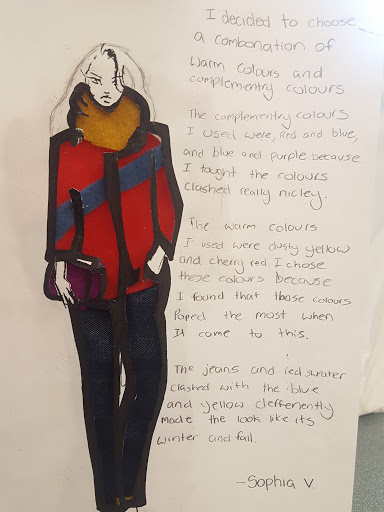 I decided to choose
a combonation of
warm colours and
complementry colours.
The complementry colours
I used were, Red and blue,
and blue and purple because
I tought the colours
clashed really nicley.
The warm colours
I used were dusty yellow
and cherry red I chose
these colours because
I found that those colours
Poped the most when
It came to this.
The jeans and red sweater
clashed with the blue
and yellow cleffenently
made the look like its
winter and fall.
-Sophia V.